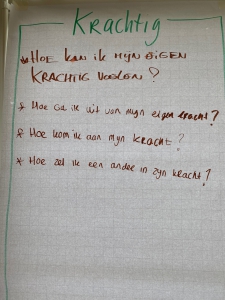 Krachtig
* Hoe kan ik mijn eigen
krachtig voelen?
* Hoe ga ik uit van mijn eigen kracht?
* Hoe kom ik aan mijn kracht?
* Hoe zet ik een ander in zijn kracht?